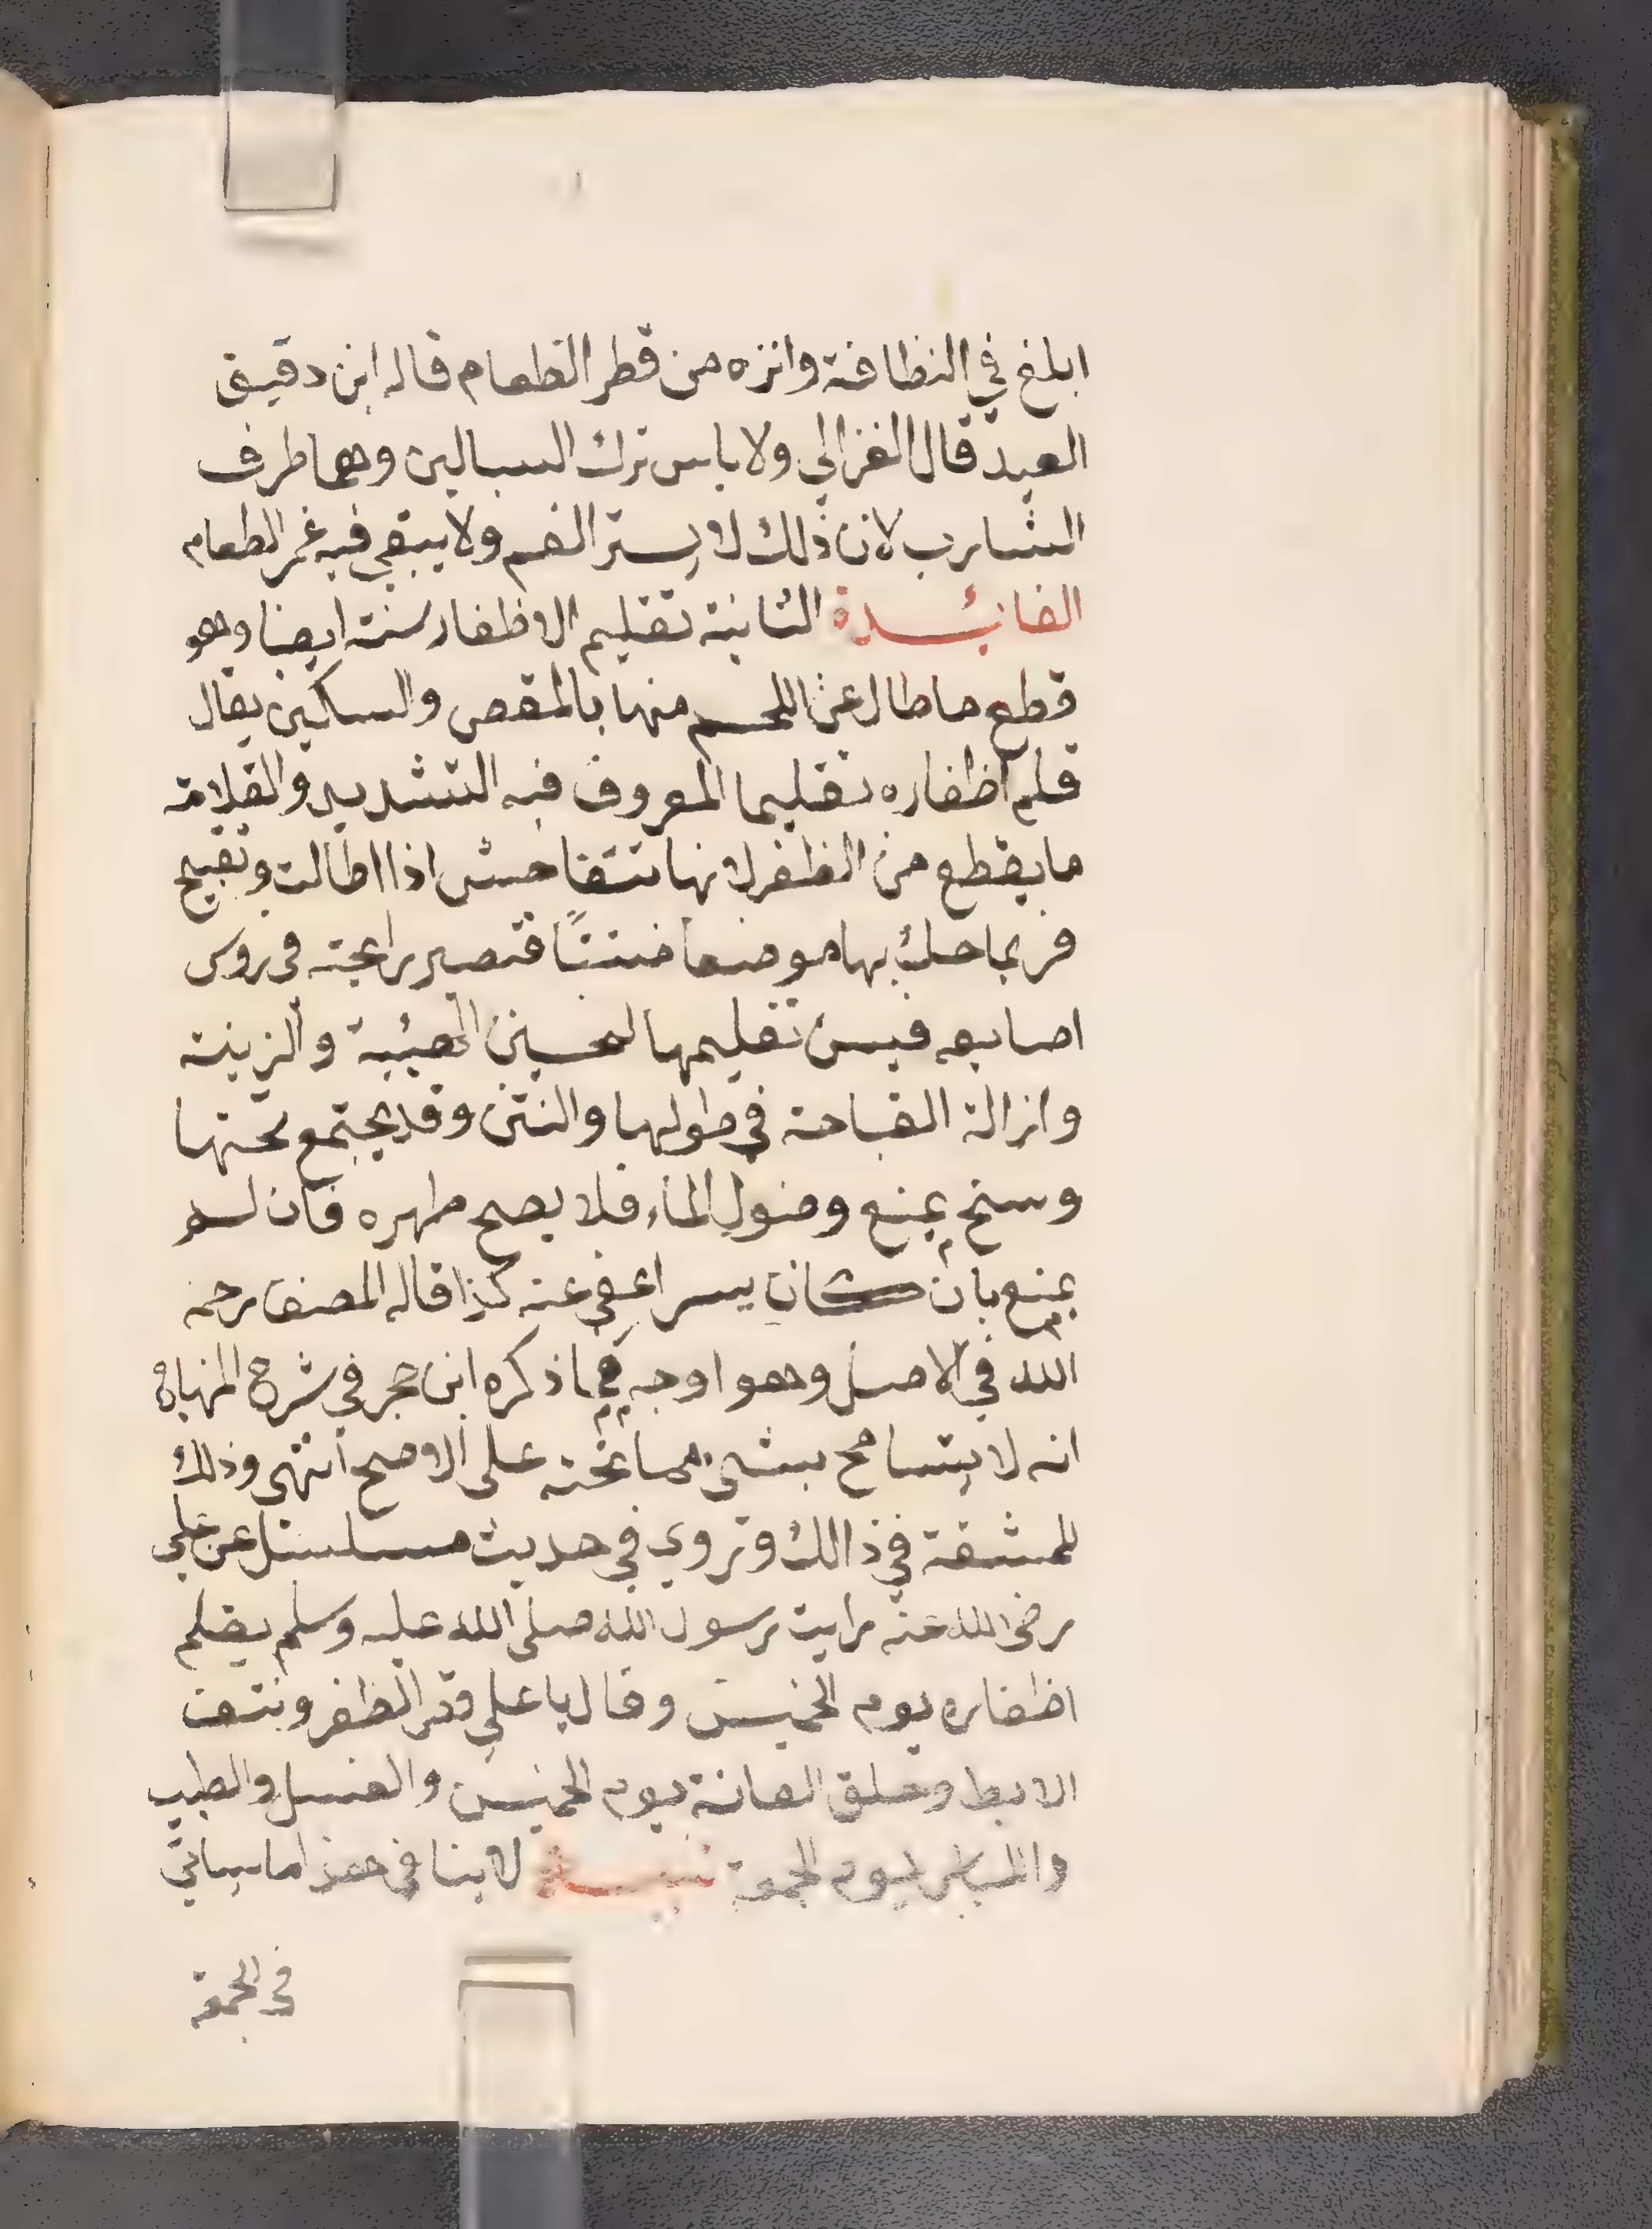 ابلغ في النظافة وانزه من قطر الطعام قاله ابن دقيق
العيد قال الغزالي ولا باس ترك السبالين وهما طرف
الشارب لان ذلك لا يستر الفم ولا يبقي فيه غمر الطعام
الفائدة الثانية تقليم الاظفار سنة ايضا وهو
قطع ما طال عن اللحم منها بالمقص والسكين يقال
قلم اظفاره تقليما المعروف فيه التشديد والقلامة
ما يقطع من الظفر لانها تتفاحش اذا اطالت وتقبح
فربما حك بها موضعا منتنًا فتصير رائحته في روس
اصابعه فيسن تقليمها لتحسين الهيئية والزينة
وازالة القباحة في طولها والنتن وقد يجتمع تحتها
وسخ يمنع وضول الماء فلا يصح طهره فان لم
يمنع بان كان يسرا عفي عنه كذا قاله المصنف رحمه
الله في الاصل وهو اوجه فيما ذكره ابن حجر في شرح المنهاج
انه لا يتسامح بشيء مما تحته على الاصح انتهى وذلك
للمشقة في ذالك وتروي في حديث مسلسل عن علي
رضى الله عنه رايت رسول الله صلى الله عليه وسلم يقلم
اظفاره يوم الخميس وقال يا علي قص الظفر ونتف
الابط وحلق العانة يوم الخميس والغسل والطيب
واللباس ليوم الجمعة تنبيه لا ينافي هذا ما سياتي
في الجمعة